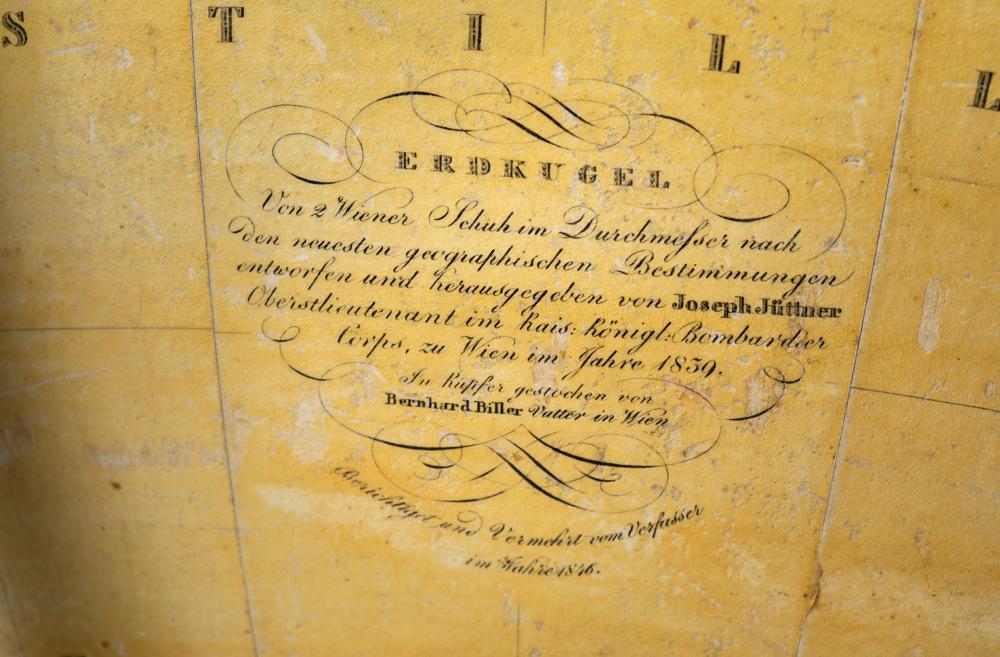 S T I L L
ERDKUGEL
Von 2 Wiener Schuh im Durchmeſser nach
den neuesten geographischen Bestimmungen
entworfen und herausgegeben von Joseph Jüttner
Oberstlieutenant im kais: königl: Bombardier
Corps, zu Wien im Jahre 1839.
In Kupfer gestochen von
Bernhard Biller Vatter in Wien
Berichtiget und Vermehrt vom Verfasser
im Jahre 1846.